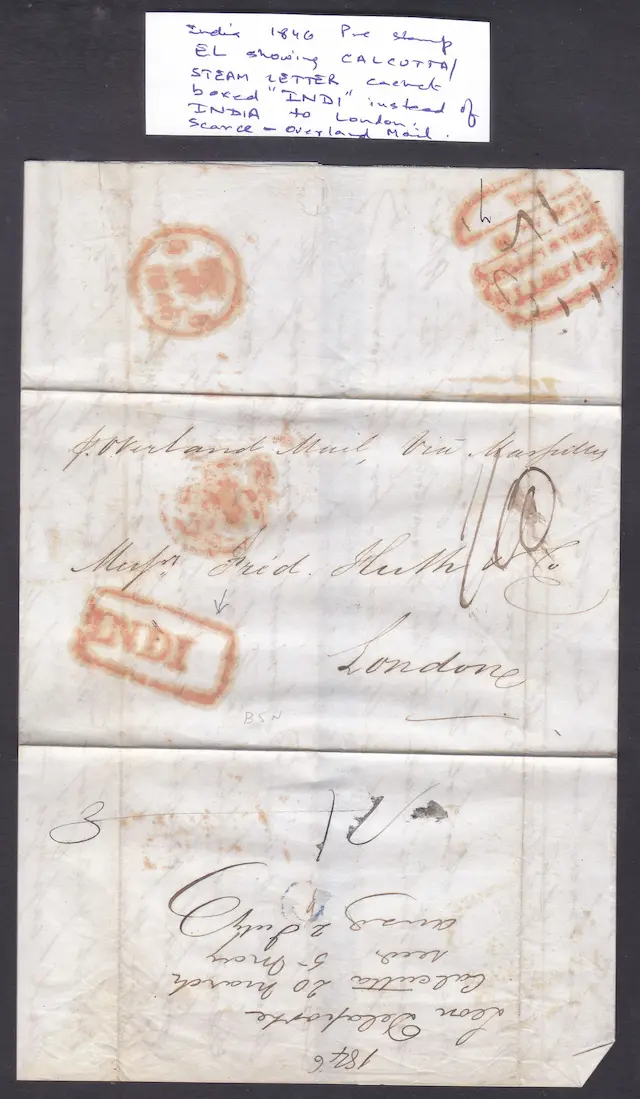 India 1846 Pre stamp
EL showing CALCUTTA/
STEAM LETTER cachet
boxed "INDI" instead of
INDIA to London.
Scarce - Overland Mail.
p. Overland Mail, Via Marseilles
Messrs Fred. Huth & Co
INDI
London
BSN
1846
Leon Delaporte
Calcutta 20 March
recd 5 May
ansd 2 July